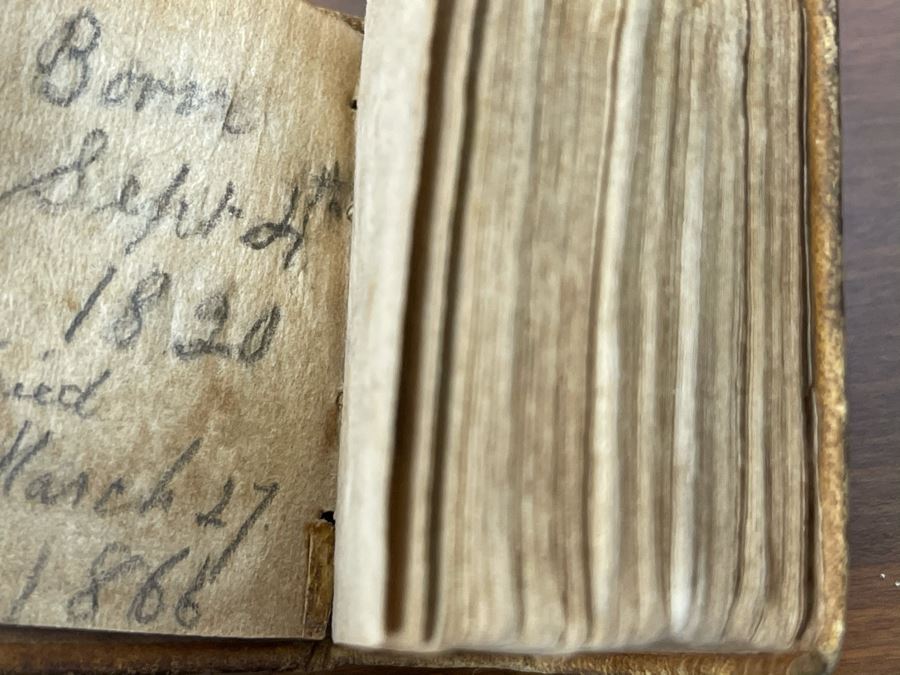 Born
Sept 4th
1820
ied
March 27.
1866